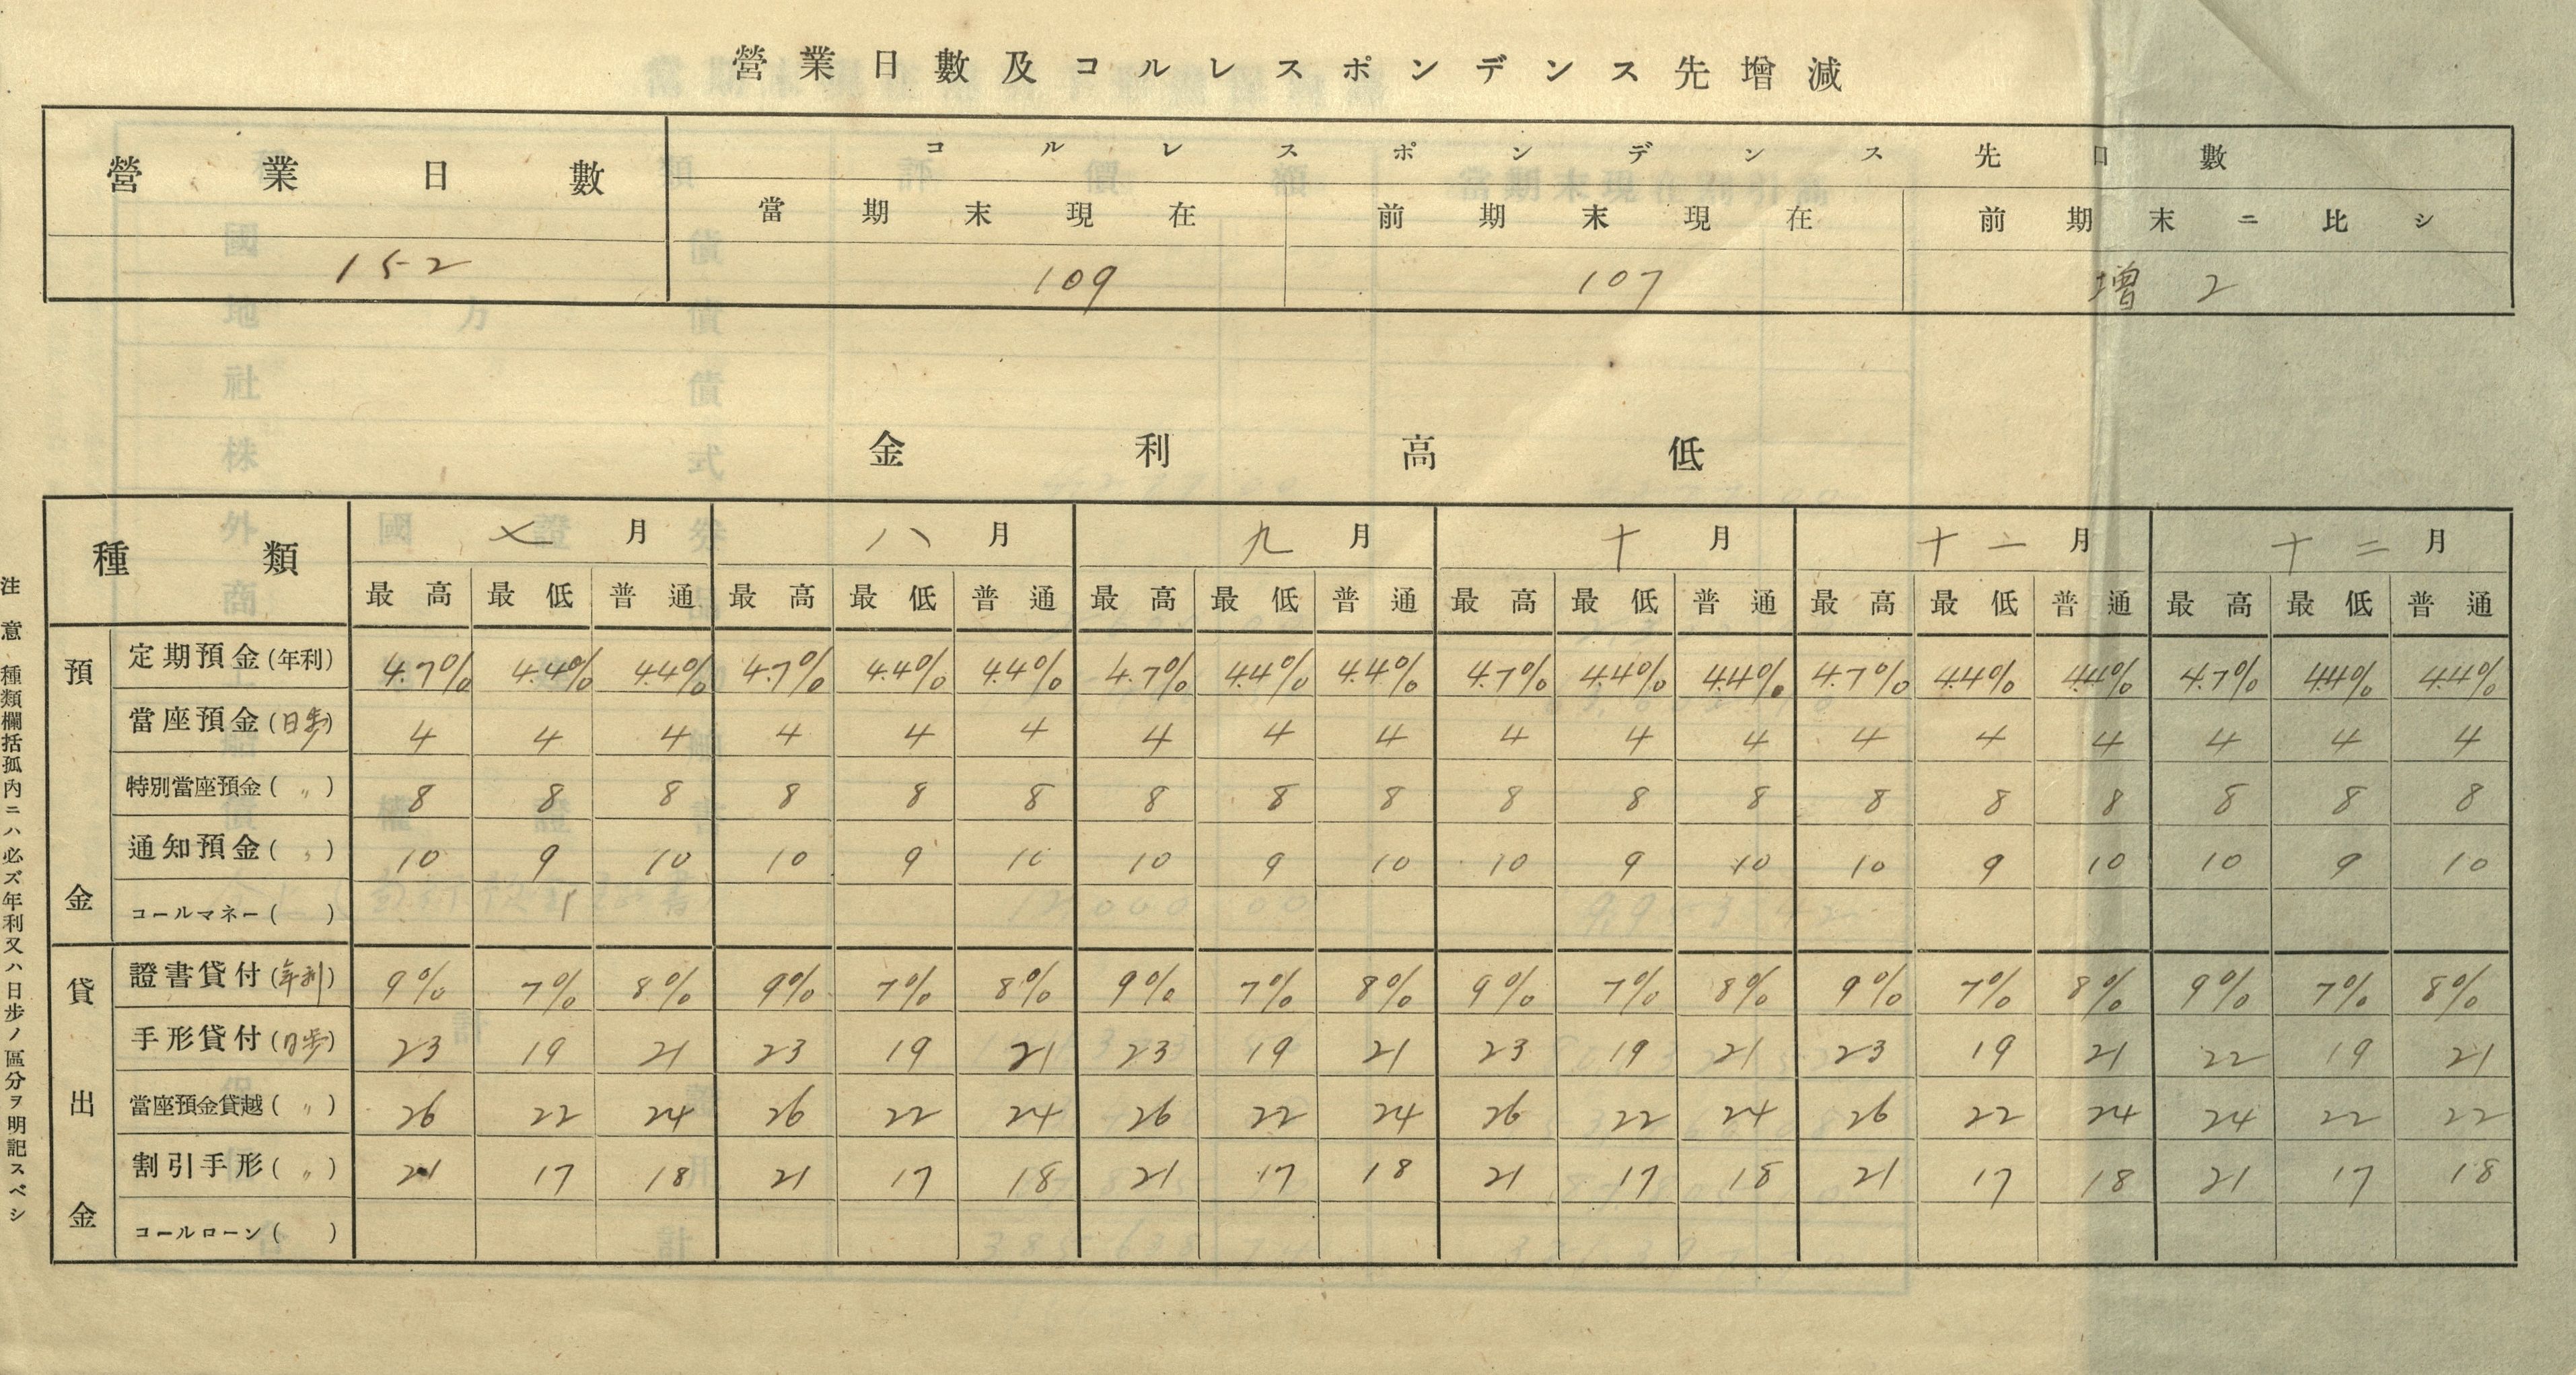 營業日數及コルレスポンデンス先增減
營業日數 コルレスポンデンス先口數
當期末現在 前期末現在 前期末ニ比シ
152 109 107 增 2
金利高低
種類 七月 八月 九月 十月 十一月 十二月
最高 最低 普通 最高 最低 普通 最高 最低 普通 最高 最低 普通 最高 最低 普通 最高 最低 普通
預金
定期預金(年利) 4.7% 4.4% 4.4% 4.7% 4.4% 4.4% 4.7% 4.4% 4.4% 4.7% 4.4% 4.4% 4.7% 4.4% 4.4% 4.7% 4.4% 4.4%
當座預金(日歩) 4 4 4 4 4 4 4 4 4 4 4 4 4 4 4 4 4 4
特別當座預金(〃) 8 8 8 8 8 8 8 8 8 8 8 8 8 8 8 8 8 8
通知預金(〃) 10 9 10 10 9 10 10 9 10 10 9 10 10 9 10 10 9 10
コールマネー( )
貸出金
證書貸付(年利) 9% 7% 8% 9% 7% 8% 9% 7% 8% 9% 7% 8% 9% 7% 8% 9% 7% 8%
手形貸付(日歩) 23 19 21 23 19 21 23 19 21 23 19 21 23 19 21 22 19 21
當座預金貸越(〃) 26 22 24 26 22 24 26 22 24 26 22 24 26 22 24 24 22 22
割引手形(〃) 21 17 18 21 17 18 21 17 18 21 17 18 21 17 18 21 17 18
コールローン( )
注意 種類欄括孤內ニハ必ズ年利又ハ日歩ノ區分ヲ明記スベシ